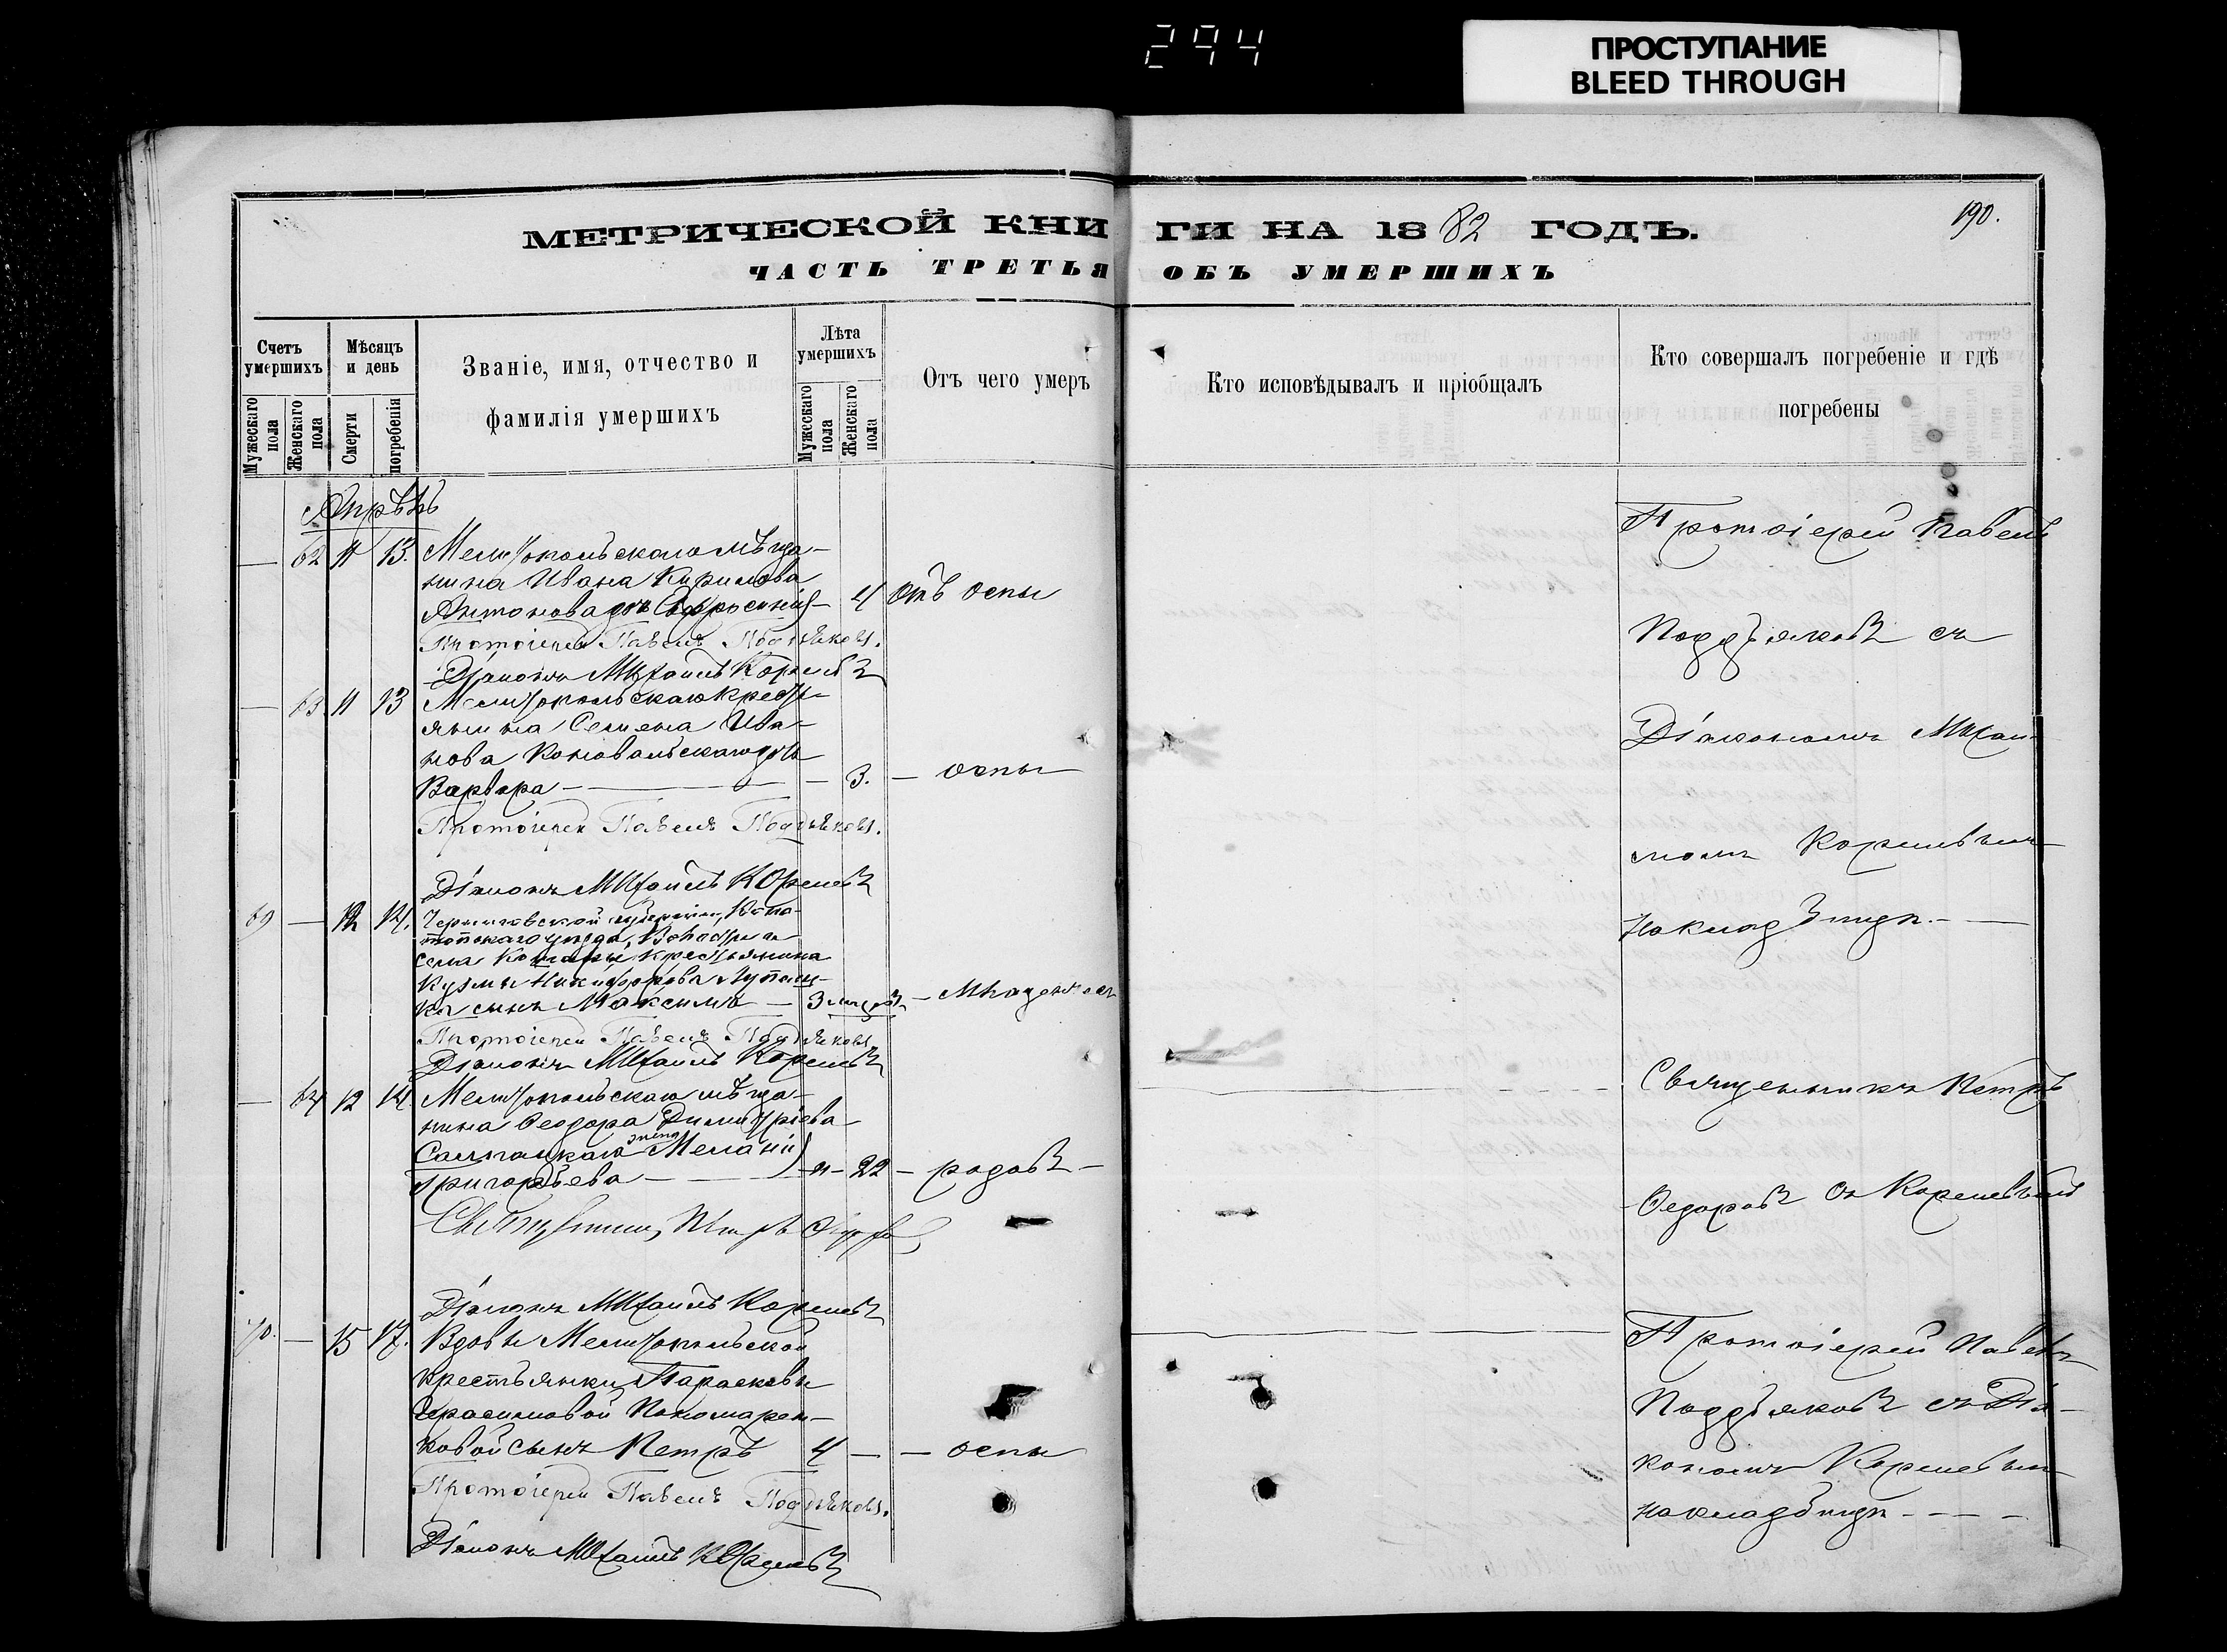 294
ПРОСТУПАНИЕ
BLEED THROUGH
190.
МЕТРИЧЕСКОЙ КНИГИ НА 1882 ГОДЪ.
ЧАСТЬ ТРЕТЬЯ ОБЪ УМЕРШИХЪ
Счетъ умершихъ
Мужескаго пола
Женскаго пола
Мѣсяцъ и день
Смерти
погребенія
Званіе, имя, отчество и
фамилія умершихъ
Лѣта умершихъ
Мужескаго пола
Женскаго пола
Отъ чего умеръ
Кто исповѣдывалъ и пріобщалъ
Кто совершалъ погребеніе и гдѣ
погребены
Апрѣль
— 62 11 13. Мелитопольскаго мѣща-
нина Ивана Кирилова
Антонова дочь Евфросинія — 4 отъ оспы
Протоіерей Павелъ Поддьяковъ.
Діаконъ Михаилъ Корлевъ
Протоіерей Павелъ
Поддьяковъ съ
Діакономъ Михаи-
ломъ
на кладбищѣ. —
— 63 11 13 Мелитопольскаго крест-
янина Семена Ива-
нова Коновальскаго дочь
Варвара — — 3. — оспы
Протоіерей Павелъ Поддьяковъ.
Діаконъ Михаилъ
69 — 12 14. Черниговской губерніи, Коно-
топскаго уѣзда,
села крестьянина
Кузьмы Никифорова
сынъ Максимъ — 3 мѣсяц. — младенческ
Протоіерей Павелъ Поддьяковъ
Діаконъ Михаилъ
— 64 12 14. Мелитопольскаго мѣща-
нина Ѳеодора Димитріева
жена Меланія
Григорьева — 22 — родовъ —
Священникъ Петръ
Діаконъ Михаилъ
Священникъ Петръ
Ѳедоровъ съ
70. — 15 17. Вдовы Мелитопольской
крестьянки Параскевы
Герасимовой Пономарен-
ковой сынъ Петръ 4 — — оспы
Протоіерей Павелъ Поддьяковъ.
Діаконъ Михаилъ
Протоіерей Павелъ
Поддьяковъ съ Діа-
кономъ
на кладбищѣ - - - -